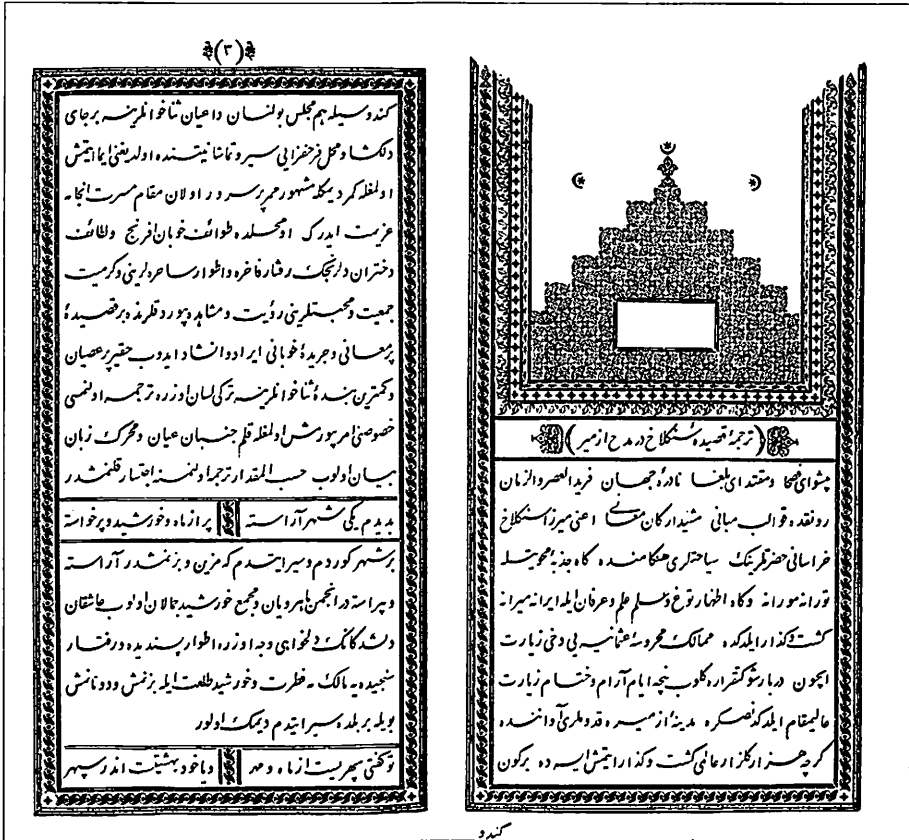 (ترجمهٔ قصیدهٔ سنکلاخ در مدح ازمیر)
پیشوای فصحا ومقتدای بلغا نادرهٔ جهان فرید العصر والزمان
قوالب مبانی مشید ارکان معانی اعنی میرزا سنکلاخ
خراسانی حضرتلرینک سیاحتلری هنکامنده کاه جذبهٔ محویتله
تورانه مورانه وکاه اظهار توغ وسلم علم وعرفان ایله ایرانه میرانه
کشت وکذار ایلدکده ممالک محروسهٔ عثمانیه یی دخی زیارت
ایچون دربار شوکتقراره کلوب نیجه ایام آرام وختام زیارت
عالیمقام ایلدکدنصکره مدینهٔ ازمیره قدوملری آواننده
کرچه هزار کلزار عالمی کشت وکذار ایتمش ایسه ده برکون
کندو
(٣)
کندوسیله هم مجلس بولنان داعیان ثناخوانلرینه برجای
دلکشا ومحل فرحفزایی سیر وتماشا نیتنده اولدیغنی ایما ایتمش
اولمغله کمر دیمکله مشهور ممر پرسرور اولان مقام مسرت انجامه
عزیمت ایدرک اومحلده طوائف خوبان افرنج ولطائف
دختران دلرنجک رفتار فاخره واطوار ساحره لرینی وکرمیت
جمعیت ومحبتلرینی رؤیت ومشاهده بیوردقلرنده برقصیدهٔ
پرمعانی وجریدهٔ خوبانی ایراد وانشاد ایدوب حقیر پرعصیان
وکمترین بندهٔ ثناخوانلرینه ترکی لسان اوزره ترجمه اولنمسی
خصوصنی امر بیورمش اولمغله قلم جنبان عیان ومحرک زبان
بیان اولوب حسب المقدار ترجمه اولنمسنه ابتدار قلنمشدر
بدیدم یکی شهر آراسته پر از ماه وخورشید وپرخواسته
برشهر کوردم وسیر ایتدم که مزین وبزنمشدر آراسته
وپیراسته در انجمن ماهرویان ومجمع خورشید جمالان اولوب عاشقان
دلشدکانک دلخواهی وجه اوزره اطوار پسندیده ورفتار
سنجیده یه مالک مه فطرت وخورشید طلعت ایله بزنمش ودونانمش
بویله بر بلده سیر ایتدم دیمک اولور
توکفتی سپهریست از ماه ومهر ویاخود بهشیتت اندر سپهر